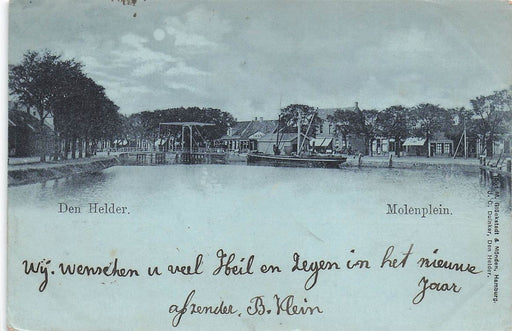 Den Helder.
Molenplein.
Wij. wenschen u veel Heil en Zegen in het nieuwe
Jaar
afzender, B. Klein
Glückstadt & Münden, Hamburg.
C. Duinker, Den Helder.